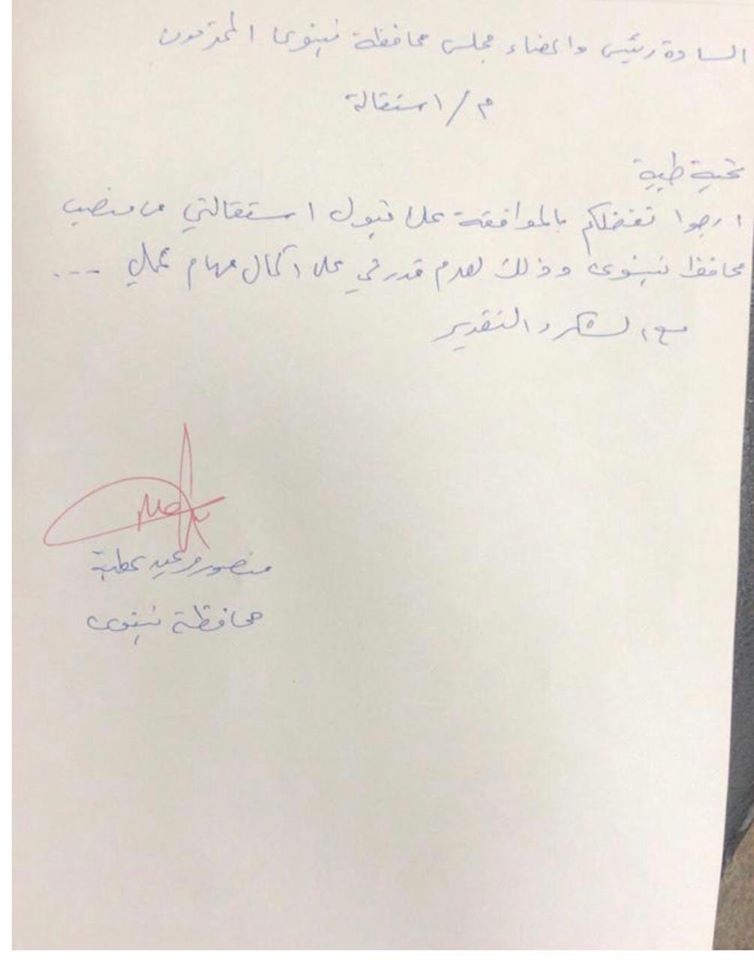 السادة رئيس واعضاء مجلس محافظة نينوى المحترمون
م/ استقالة
تحية طيبة
ارجوا تفضلكم بالموافقة على قبول استقالتي من منصب
محافظ نينوى وذلك لعدم قدرتي على اكمال مهام عملي ...
مع الشكر والتقدير
منصور مرعيد عطية
محافظة نينوى